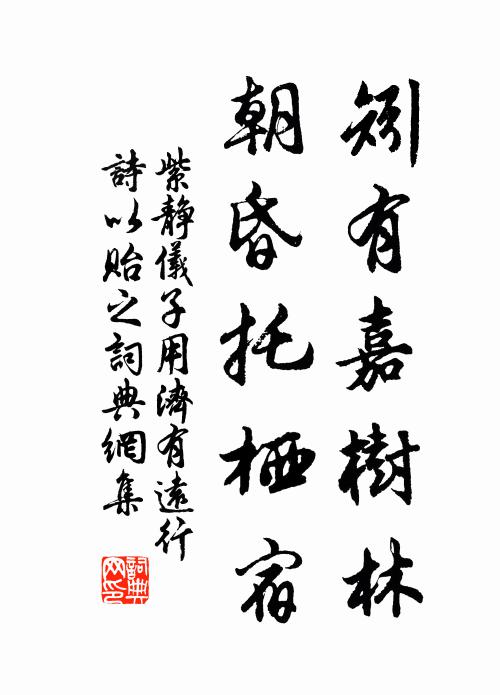 矧有嘉樹林
朝昏托栖宿
紫静儀子用濟有遠行
詩以貽之詞典網集
詞典网印